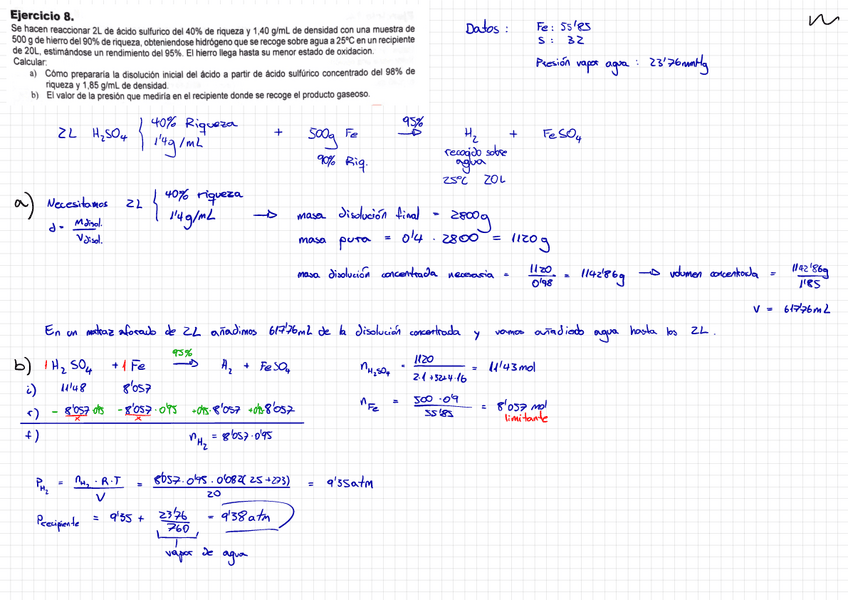 Ejercicio 8.
Se hacen reaccionar 2L de ácido sulfúrico del 40% de riqueza y 1,40 g/mL de densidad con una muestra de
500 g de hierro del 90% de riqueza, obteniendose hidrógeno que se recoge sobre agua a 25°C en un recipiente
de 20L, estimándose un rendimiento del 95%. El hierro llega hasta su menor estado de oxidacion.
Calcular:
a) Cómo prepararía la disolución inicial del ácido a partir de ácido sulfúrico concentrado del 98% de
riqueza y 1,85 g/mL de densidad.
b) El valor de la presión que mediría en el recipiente donde se recoge el producto gaseoso.
Datos : Fe: 55'85
S : 32
Presión vapor agua : 23'76mmHg
2L H₂SO₄ { 40% Riqueza 1'4g/mL + 500g Fe 90% Riq. 95% → H₂ + FeSO₄
recogido sobre
agua
25ºC 20L
a) Necesitamos 2L { 40% riqueza 1'4g/mL → masa disolución final = 2800g
d = m disol. / V disol.
masa pura = 0'4 · 2800 = 1120 g
masa disolución concentrada necesaria = 1120 / 0'98 = 1142'86g → volumen concentrada = 1142'86g / 1'85
V = 617'76mL
En un matraz aforado de 2L añadimos 617'76mL de la disolución concentrada y vamos añadiendo agua hasta los 2L.
b) 1 H₂SO₄ + 1 Fe 95% → H₂ + FeSO₄
i) 11'48 8'057
r) - 8'057·0'95 - 8'057·0'95 +0'95·8'057 +0'95·8'057
x x
f) n H₂ = 8'057·0'95
n H₂SO₄ = 1120 / 2·1+32+4·16 = 11'43mol
n Fe = 500·0'9 / 55'85 = 8'057 mol
limitante
P H₂ = n H₂ · R·T / V = 8'057·0'95·0'082(25+273) / 20 = 9'35atm
P recipiente = 9'35 + 23'76 / 760 = 9'38atm
vapor de agua